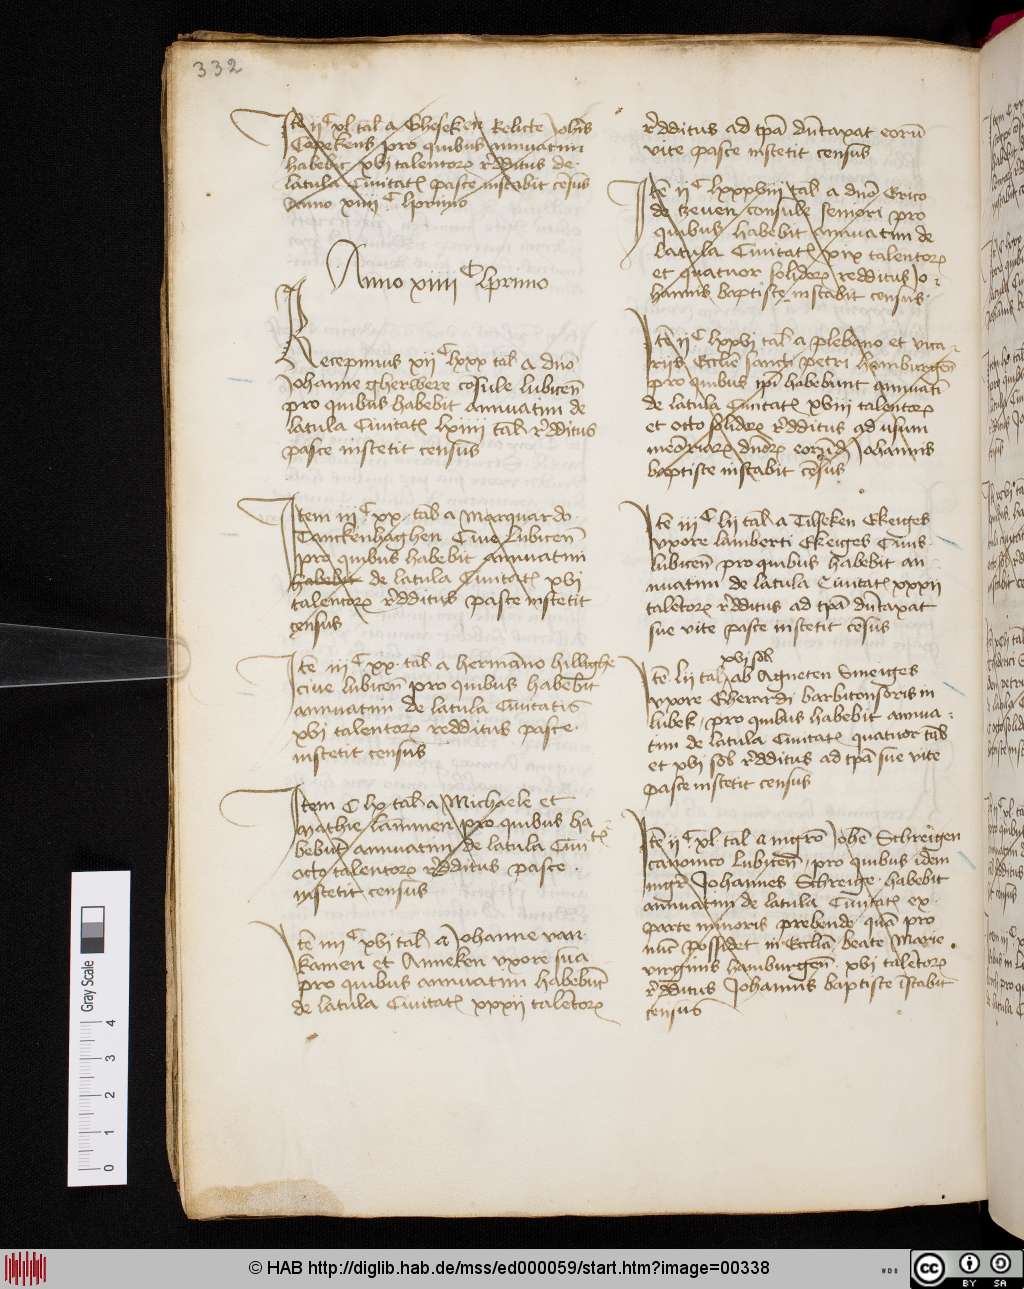 332
Itē ii c xl tal a Gheseken Relicte Joh̄is
Capekens pro quibus annuatim
habebit xvi talentorꝫ r̄dditus de
latula Ciuitatꝭ pasce instabit cēsus
Anno xiiii c lprimo
Anno xiiii c lprimo
Recepimus xii c lxxx tal a dn̄o
Johanne gherwere cōsule lubicen̄
pro quibus habebit annuatim de
latula Ciuitatꝭ lxiiii tal r̄dditus
pasce instetit census
Item iii c xx tal a Marquardo
Danckenhaghen Ciue Lubicen̄
pro quibus habebit annuatim
habebit de latula Ciuitatꝭ xvi
talentorꝫ r̄dditus pasce instetit
census
Itē iii c xx tal a hermāno hillighe
ciue lubicen̄ pro quibus habebit
annuatim de latula Ciuitatis
xvi talentorꝫ redditus pasce
instetit census
Item C lx tal a Michaele et
Mathie lammen pro quibus ha
bebūt annuatim de latula Ciuitꝭ
octo talentorꝫ r̄dditus pasce
instetit census
Itē iiii c xvi tal a Johanne van
kamen et Anneken vxore sua
pro quibus annuatim habebūt
de latula Ciuitatꝭ xxxii talētorꝫ
r̄dditus ad tp̄a dūtaxat eorū
vite pasce instetit census
Itē ii c lxxxviii tal a dn̄o Erico
de tzeuen consule seniori pro
quibus habebit annuatim de
latula Ciuitatꝭ xix talentorꝫ
et quatuor solidorꝫ redditus Jo-
hannis baptiste instabit census
Itē ii c lxxvi tal a plebano et vica-
riis Ecclīe sancti petri hamburgen̄
pro quibus ip̄i habebunt annuatī
de latula Ciuitatꝭ xviii talentorꝫ
et octo solidorꝫ r̄dditus ad vsum
meōriarꝫ dn̄orꝫ eorūdꝫ Johannis
baptiste instabit cēsus
Itē iii c lii tal a Tilseken Ekeiges
vxore lamberti Ekeiges Ciuis
lubicen̄ pro quibus habebit an
nuatim de latula Ciuitatꝭ xxxii
talētorꝫ r̄dditus ad tp̄a dūtaxat
sue vite pasce instetit cēsus
xvi sol
Itē lii tal ab Agneten Smeiges
vxore Gherardi barbitonsoris in
lubek pro quibus habebit annua-
tim de latula Ciuitatꝭ quatuor tal
et xvi sol r̄dditus ad tp̄a sue vite
pasce instetit census
Itē ii c xl tal a mgrō Johē Schreigen
canonico lubicen̄ pro quibus idem
mgr̄ Johannes Schreige habebit
annuatim de latula Ciuitatꝭ ex
parte minoris prebende quā pro
nūc possidet in Ecclīa beate Marie
virginis hamburgen̄ xvi talētorꝫ
r̄dditus Johannis baptiste īstabit
census
Gray Scale
0 1 2 3 4
© HAB http://diglib.hab.de/mss/ed000059/start.htm?image=00338
WDB
cc
BY SA